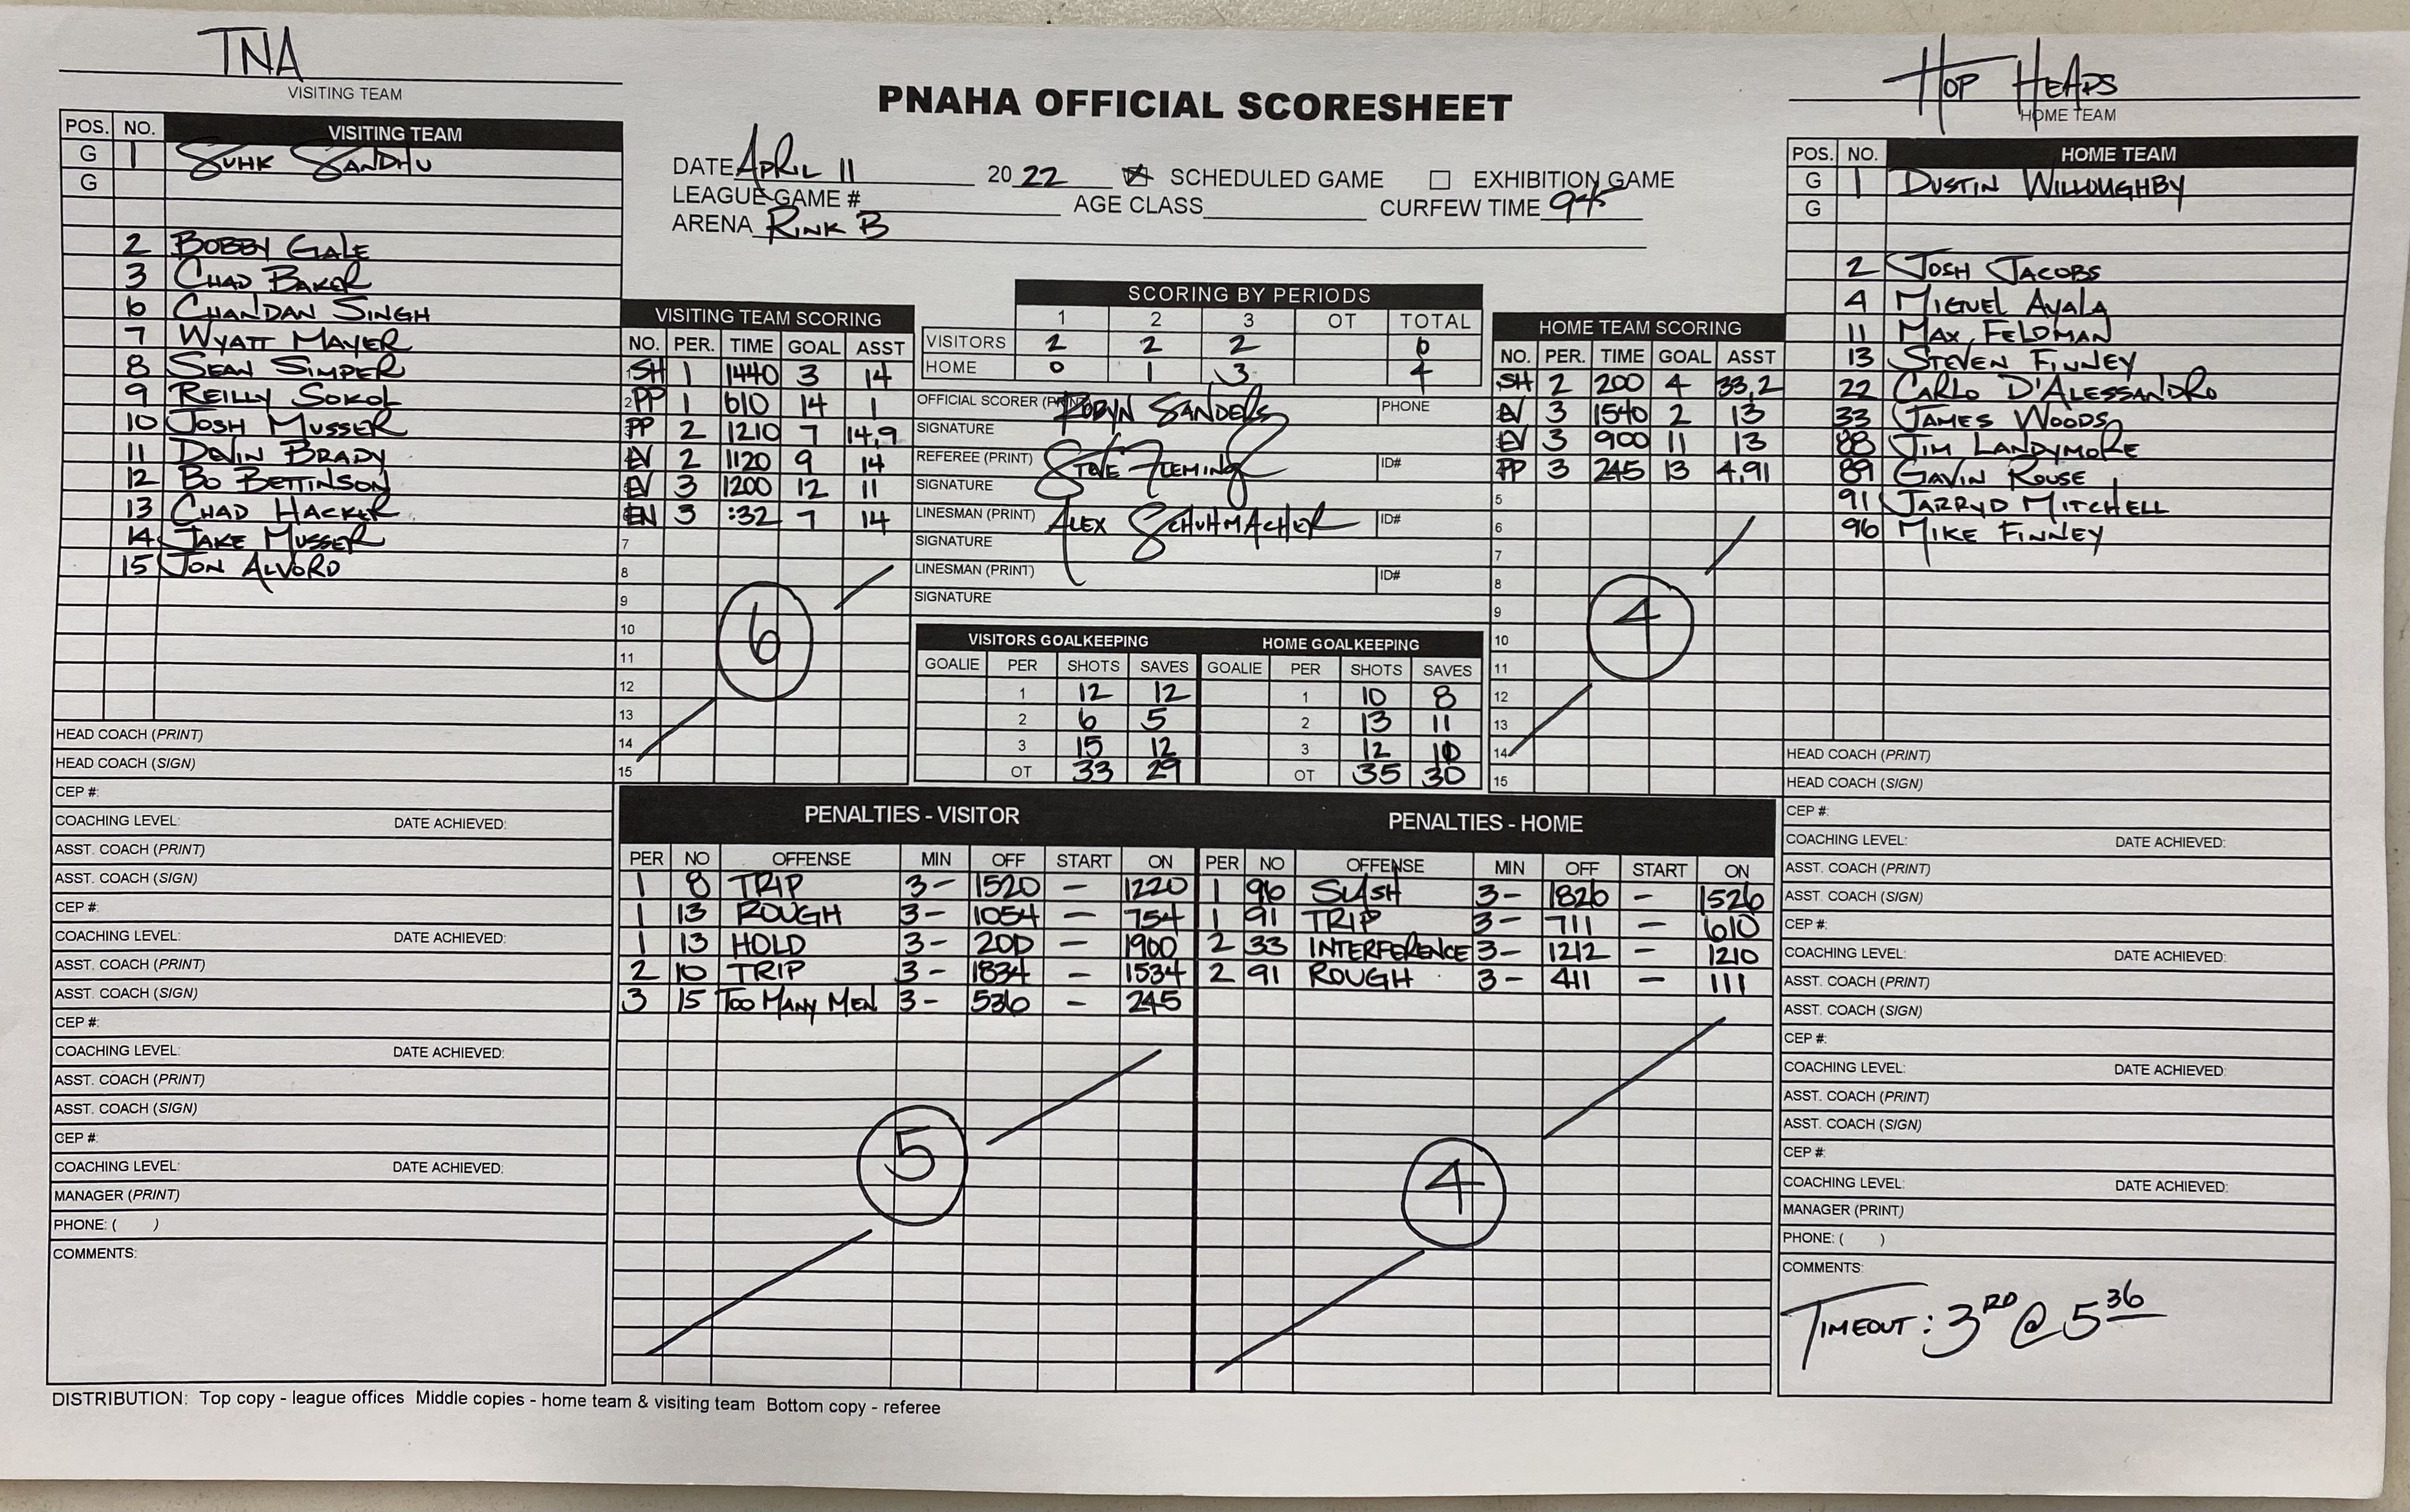 TNA
VISITING TEAM
HOP HEADS
HOME TEAM
PNAHA OFFICIAL SCORESHEET
DATE APRIL 11 20 22 SCHEDULED GAME EXHIBITION GAME
LEAGUE GAME # AGE CLASS CURFEW TIME 945
ARENA RINK B
POS. NO. VISITING TEAM
G 1 SUHK SANDHU
G
2 BOBBY GALE
3 CHAD BAKER
6 CHANDAN SINGH
7 WYATT MAYER
8 SEAN SIMPER
9 REILLY SOKOL
10 JOSH MUSSER
11 DEVIN BRADY
12 BO BETTINSON
13 CHAD HACKER
14 JAKE MUSSER
15 JON ALVORD
HEAD COACH (PRINT)
HEAD COACH (SIGN)
CEP #:
COACHING LEVEL: DATE ACHIEVED:
ASST. COACH (PRINT)
ASST. COACH (SIGN)
CEP #:
COACHING LEVEL: DATE ACHIEVED:
ASST. COACH (PRINT)
ASST. COACH (SIGN)
CEP #:
COACHING LEVEL: DATE ACHIEVED:
ASST. COACH (PRINT)
ASST. COACH (SIGN)
CEP #:
COACHING LEVEL: DATE ACHIEVED:
MANAGER (PRINT)
PHONE: ( )
COMMENTS:
VISITING TEAM SCORING
NO. PER. TIME GOAL ASST
1 SH 1 1440 3 14
2 PP 1 610 14 1
PP 2 1210 7 14,9
EV 2 1120 9 14
EV 3 1200 12 11
EN 3 :32 7 14
7
8
9
10
11
12
13
14
15
6
SCORING BY PERIODS
1 2 3 OT TOTAL
VISITORS 2 2 2 6
HOME 0 1 3 4
OFFICIAL SCORER (PRINT) ROBYN SANDERS PHONE
SIGNATURE
REFEREE (PRINT) STEVE FLEMING ID#
SIGNATURE
LINESMAN (PRINT) ALEX SCHUHMACHER ID#
SIGNATURE
LINESMAN (PRINT) ID#
SIGNATURE
VISITORS GOALKEEPING HOME GOALKEEPING
GOALIE PER SHOTS SAVES GOALIE PER SHOTS SAVES
1 12 12 1 10 8
2 6 5 2 13 11
3 15 12 3 12 10
OT 33 29 OT 35 30
HOME TEAM SCORING
NO. PER. TIME GOAL ASST
SH 2 200 4 33,2
EV 3 1540 2 13
EV 3 900 11 13
PP 3 245 13 4,91
5
6
7
8
9
10
11
12
13
14
15
4
PENALTIES - VISITOR
PER NO OFFENSE MIN OFF START ON
1 8 TRIP 3- 1520 - 1220
1 13 ROUGH 3- 1054 - 754
1 13 HOLD 3- 200 - 1900
2 10 TRIP 3- 1834 - 1534
3 15 TOO MANY MEN 3- 536 - 245
5
PENALTIES - HOME
PER NO OFFENSE MIN OFF START ON
1 96 SLASH 3- 1826 - 1526
1 91 TRIP 3- 711 - 610
2 33 INTERFERENCE 3- 1212 - 1210
2 91 ROUGH 3- 411 - 111
4
POS. NO. HOME TEAM
G 1 DUSTIN WILLOUGHBY
G
2 JOSH JACOBS
4 MIGUEL AYALA
11 MAX FELDMAN
13 STEVEN FINNEY
22 CARLO D'ALESSANDRO
33 JAMES WOODS
88 JIM LANDYMORE
89 GAVIN ROUSE
91 JARRYD MITCHELL
96 MIKE FINNEY
HEAD COACH (PRINT)
HEAD COACH (SIGN)
CEP #:
COACHING LEVEL: DATE ACHIEVED:
ASST. COACH (PRINT)
ASST. COACH (SIGN)
CEP #:
COACHING LEVEL: DATE ACHIEVED:
ASST. COACH (PRINT)
ASST. COACH (SIGN)
CEP #:
COACHING LEVEL: DATE ACHIEVED:
ASST. COACH (PRINT)
ASST. COACH (SIGN)
CEP #:
COACHING LEVEL: DATE ACHIEVED:
MANAGER (PRINT)
PHONE: ( )
COMMENTS:
TIMEOUT: 3RD @ 536
DISTRIBUTION: Top copy - league offices Middle copies - home team & visiting team Bottom copy - referee